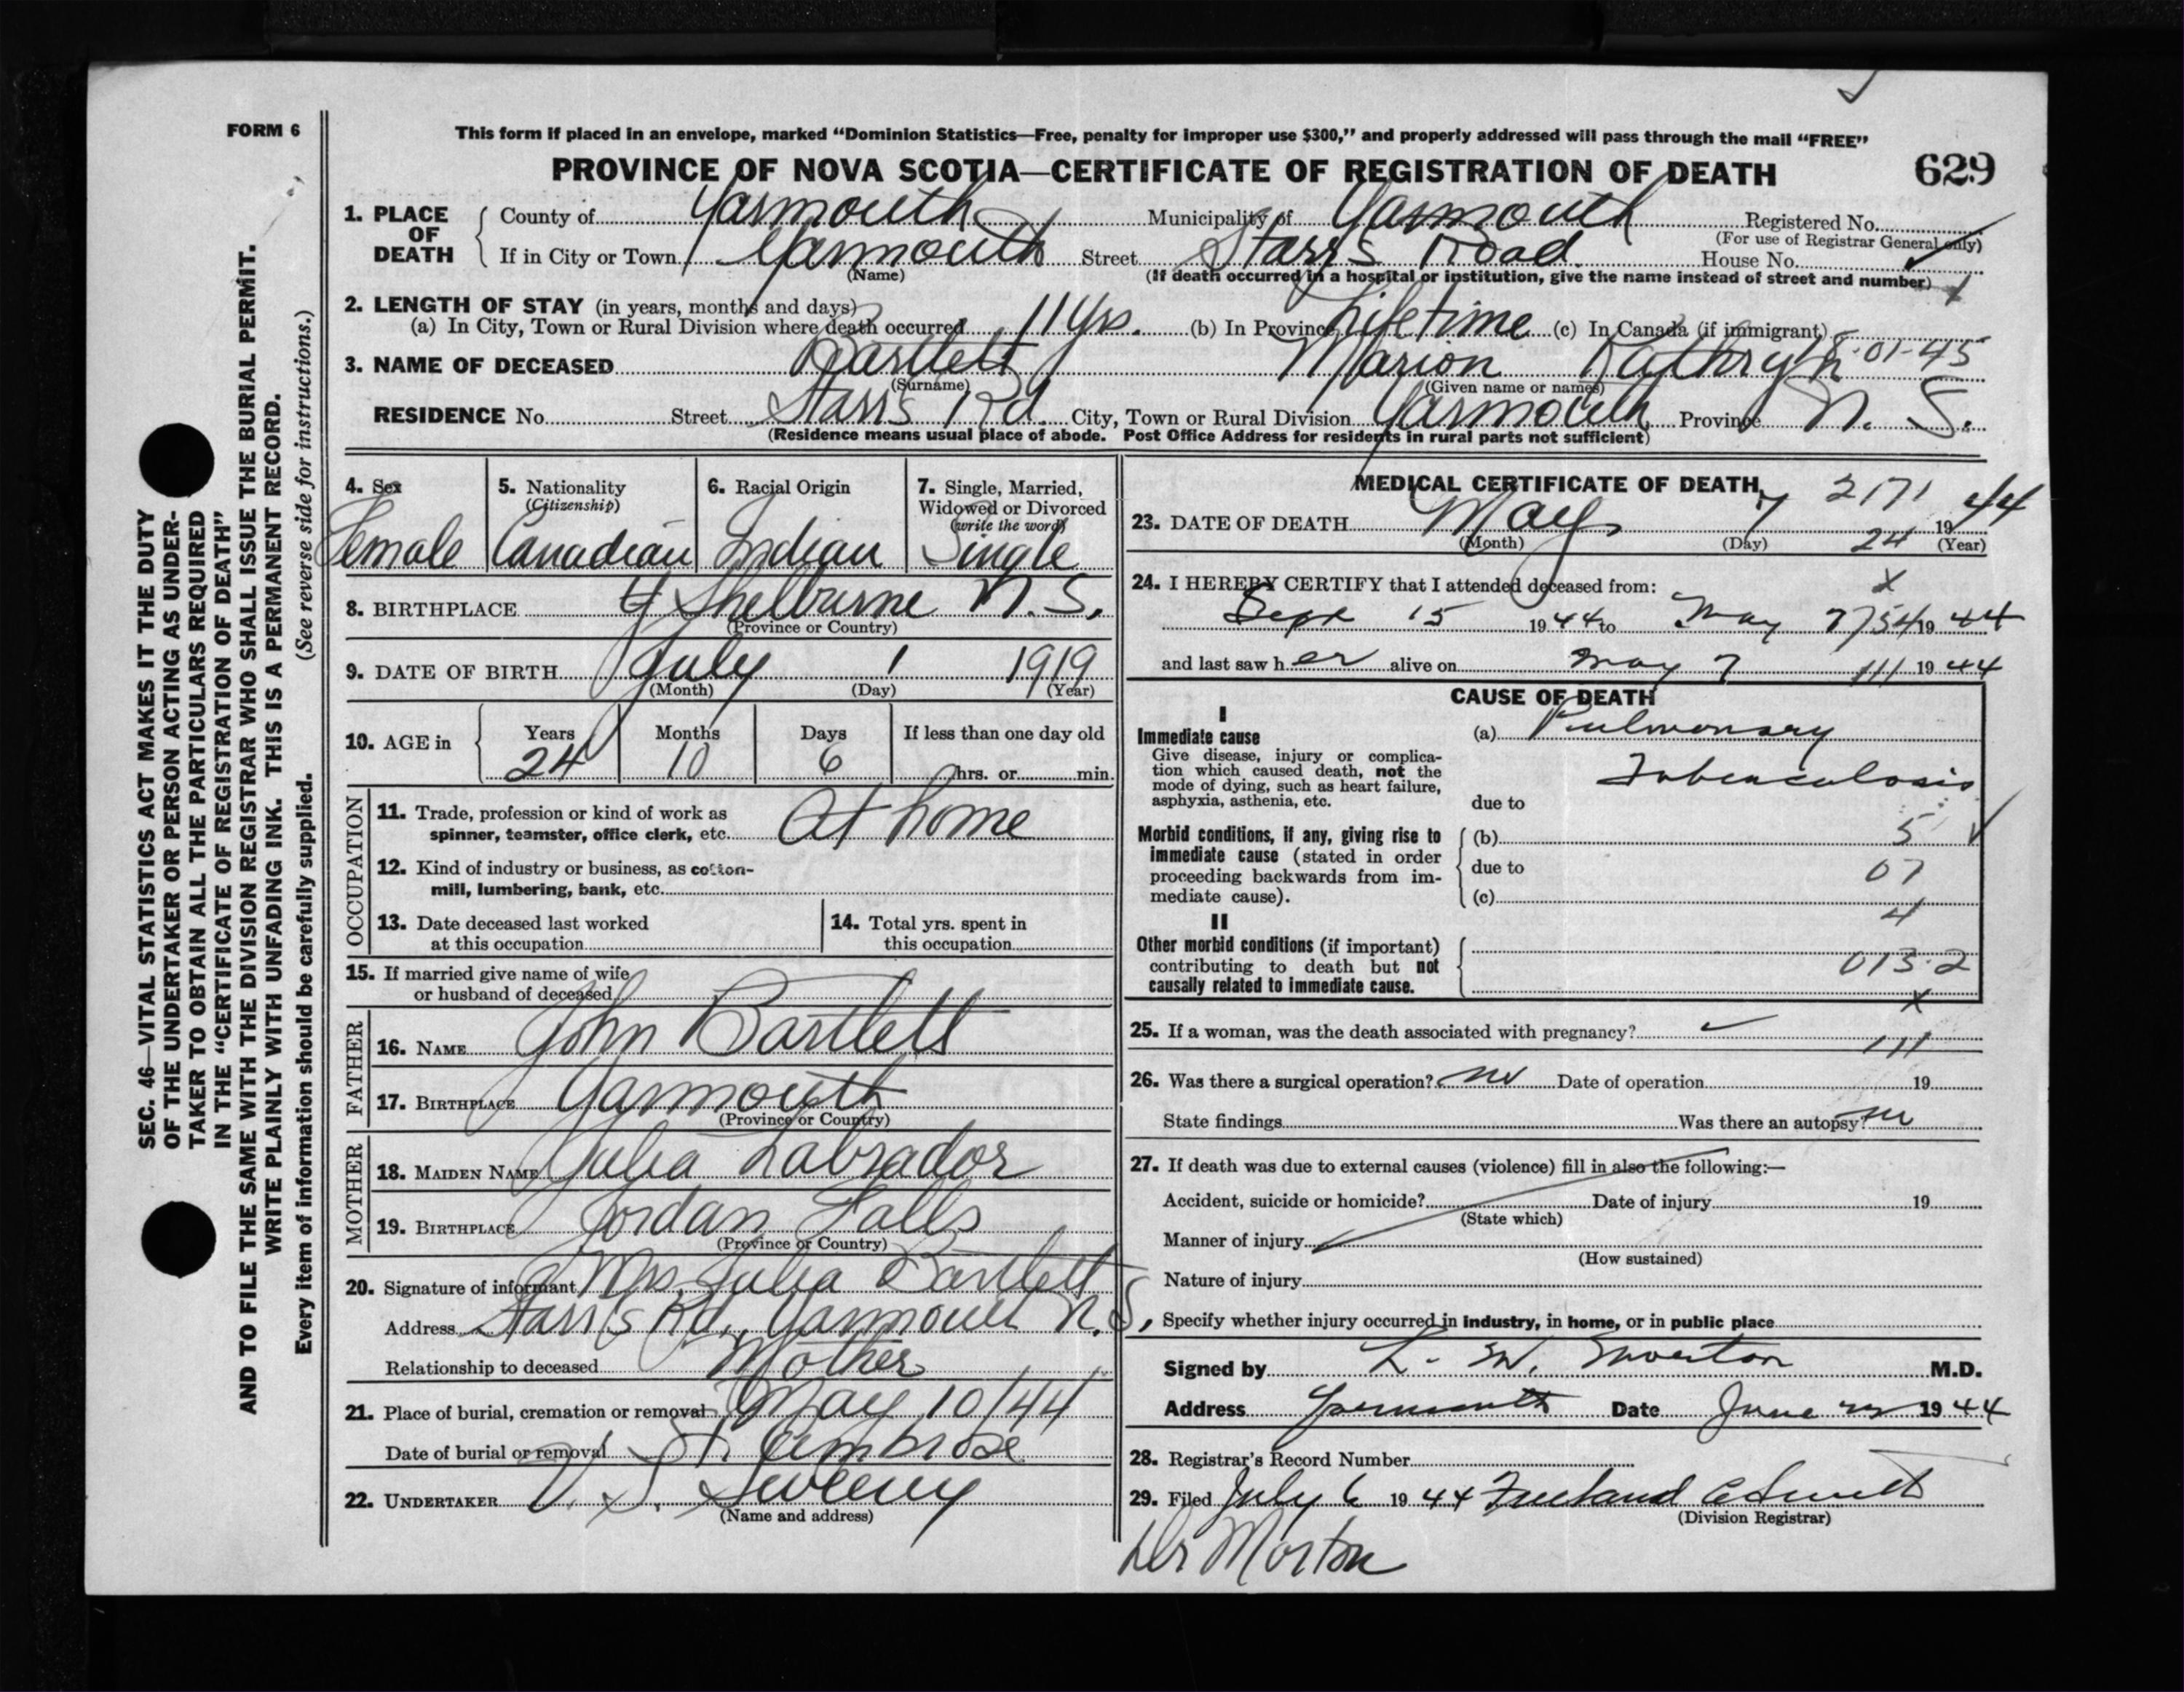 FORM 6
This form if placed in an envelope, marked “Dominion Statistics—Free, penalty for improper use $300,” and properly addressed will pass through the mail “FREE”
PROVINCE OF NOVA SCOTIA—CERTIFICATE OF REGISTRATION OF DEATH 629
1. PLACE OF DEATH County of Yarmouth Municipality of Yarmouth Registered No.
(For use of Registrar General only)
If in City or Town Yarmouth Street Starrs Road House No.
(Name) (If death occurred in a hospital or institution, give the name instead of street and number)
2. LENGTH OF STAY (in years, months and days)
(a) In City, Town or Rural Division where death occurred 11 Yrs. (b) In Province Lifetime (c) In Canada (if immigrant)
3. NAME OF DECEASED Bartlett Marion Kathryn 8-01-45
(Surname) (Given name or names)
RESIDENCE No. Street Starrs Rd. City, Town or Rural Division Yarmouth Province N. S.
(Residence means usual place of abode. Post Office Address for residents in rural parts not sufficient)
4. Sex 5. Nationality 6. Racial Origin 7. Single, Married,
(Citizenship) Widowed or Divorced
(write the word)
Female Canadian Indian Single
8. BIRTHPLACE Shelburne N.S.
(Province or Country)
9. DATE OF BIRTH July 1 1919
(Month) (Day) (Year)
10. AGE in Years Months Days If less than one day old
24 10 6 hrs. or min.
OCCUPATION
11. Trade, profession or kind of work as
spinner, teamster, office clerk, etc. At home
12. Kind of industry or business, as cotton-
mill, lumbering, bank, etc.
13. Date deceased last worked 14. Total yrs. spent in
at this occupation this occupation
15. If married give name of wife
or husband of deceased
FATHER
16. NAME John Bartlett
17. BIRTHPLACE Yarmouth
(Province or Country)
MOTHER
18. MAIDEN NAME Julia Labrador
19. BIRTHPLACE Jordan Falls
(Province or Country)
20. Signature of informant Mrs. Julia Bartlett
Address Starrs Rd, Yarmouth N.S,
Relationship to deceased Mother
21. Place of burial, cremation or removal May 10/44
Date of burial or removal St. Ambrose
22. UNDERTAKER V. S. Sweeny
(Name and address)
MEDICAL CERTIFICATE OF DEATH
2171
23. DATE OF DEATH May 7 1944
(Month) (Day) 24 (Year)
24. I HEREBY CERTIFY that I attended deceased from: x
Sept 15 1944 to May 7 754 1944
and last saw her alive on May 7 111 1944
CAUSE OF DEATH
I
Immediate cause (a) Pulmonary
Give disease, injury or complica-
tion which caused death, not the Tuberculosis
mode of dying, such as heart failure,
asphyxia, asthenia, etc. due to
Morbid conditions, if any, giving rise to (b) 5
immediate cause (stated in order
proceeding backwards from im- due to 07
mediate cause). (c)
4
II
Other morbid conditions (if important)
contributing to death but not 013.2
causally related to immediate cause.
x
25. If a woman, was the death associated with pregnancy?
111
26. Was there a surgical operation? no Date of operation 19
State findings Was there an autopsy? no
27. If death was due to external causes (violence) fill in also the following:—
Accident, suicide or homicide? Date of injury 19
(State which)
Manner of injury
(How sustained)
Nature of injury
Specify whether injury occurred in industry, in home, or in public place
Signed by L. M. Morton M.D.
Address Yarmouth Date June 1944
28. Registrar's Record Number
29. Filed July 6 1944
(Division Registrar)
Dr Morton
SEC. 46—VITAL STATISTICS ACT MAKES IT THE DUTY
OF THE UNDERTAKER OR PERSON ACTING AS UNDER-
TAKER TO OBTAIN ALL THE PARTICULARS REQUIRED
IN THE “CERTIFICATE OF REGISTRATION OF DEATH”
AND TO FILE THE SAME WITH THE DIVISION REGISTRAR WHO SHALL ISSUE THE BURIAL PERMIT.
WRITE PLAINLY WITH UNFADING INK. THIS IS A PERMANENT RECORD.
Every item of information should be carefully supplied. (See reverse side for instructions.)